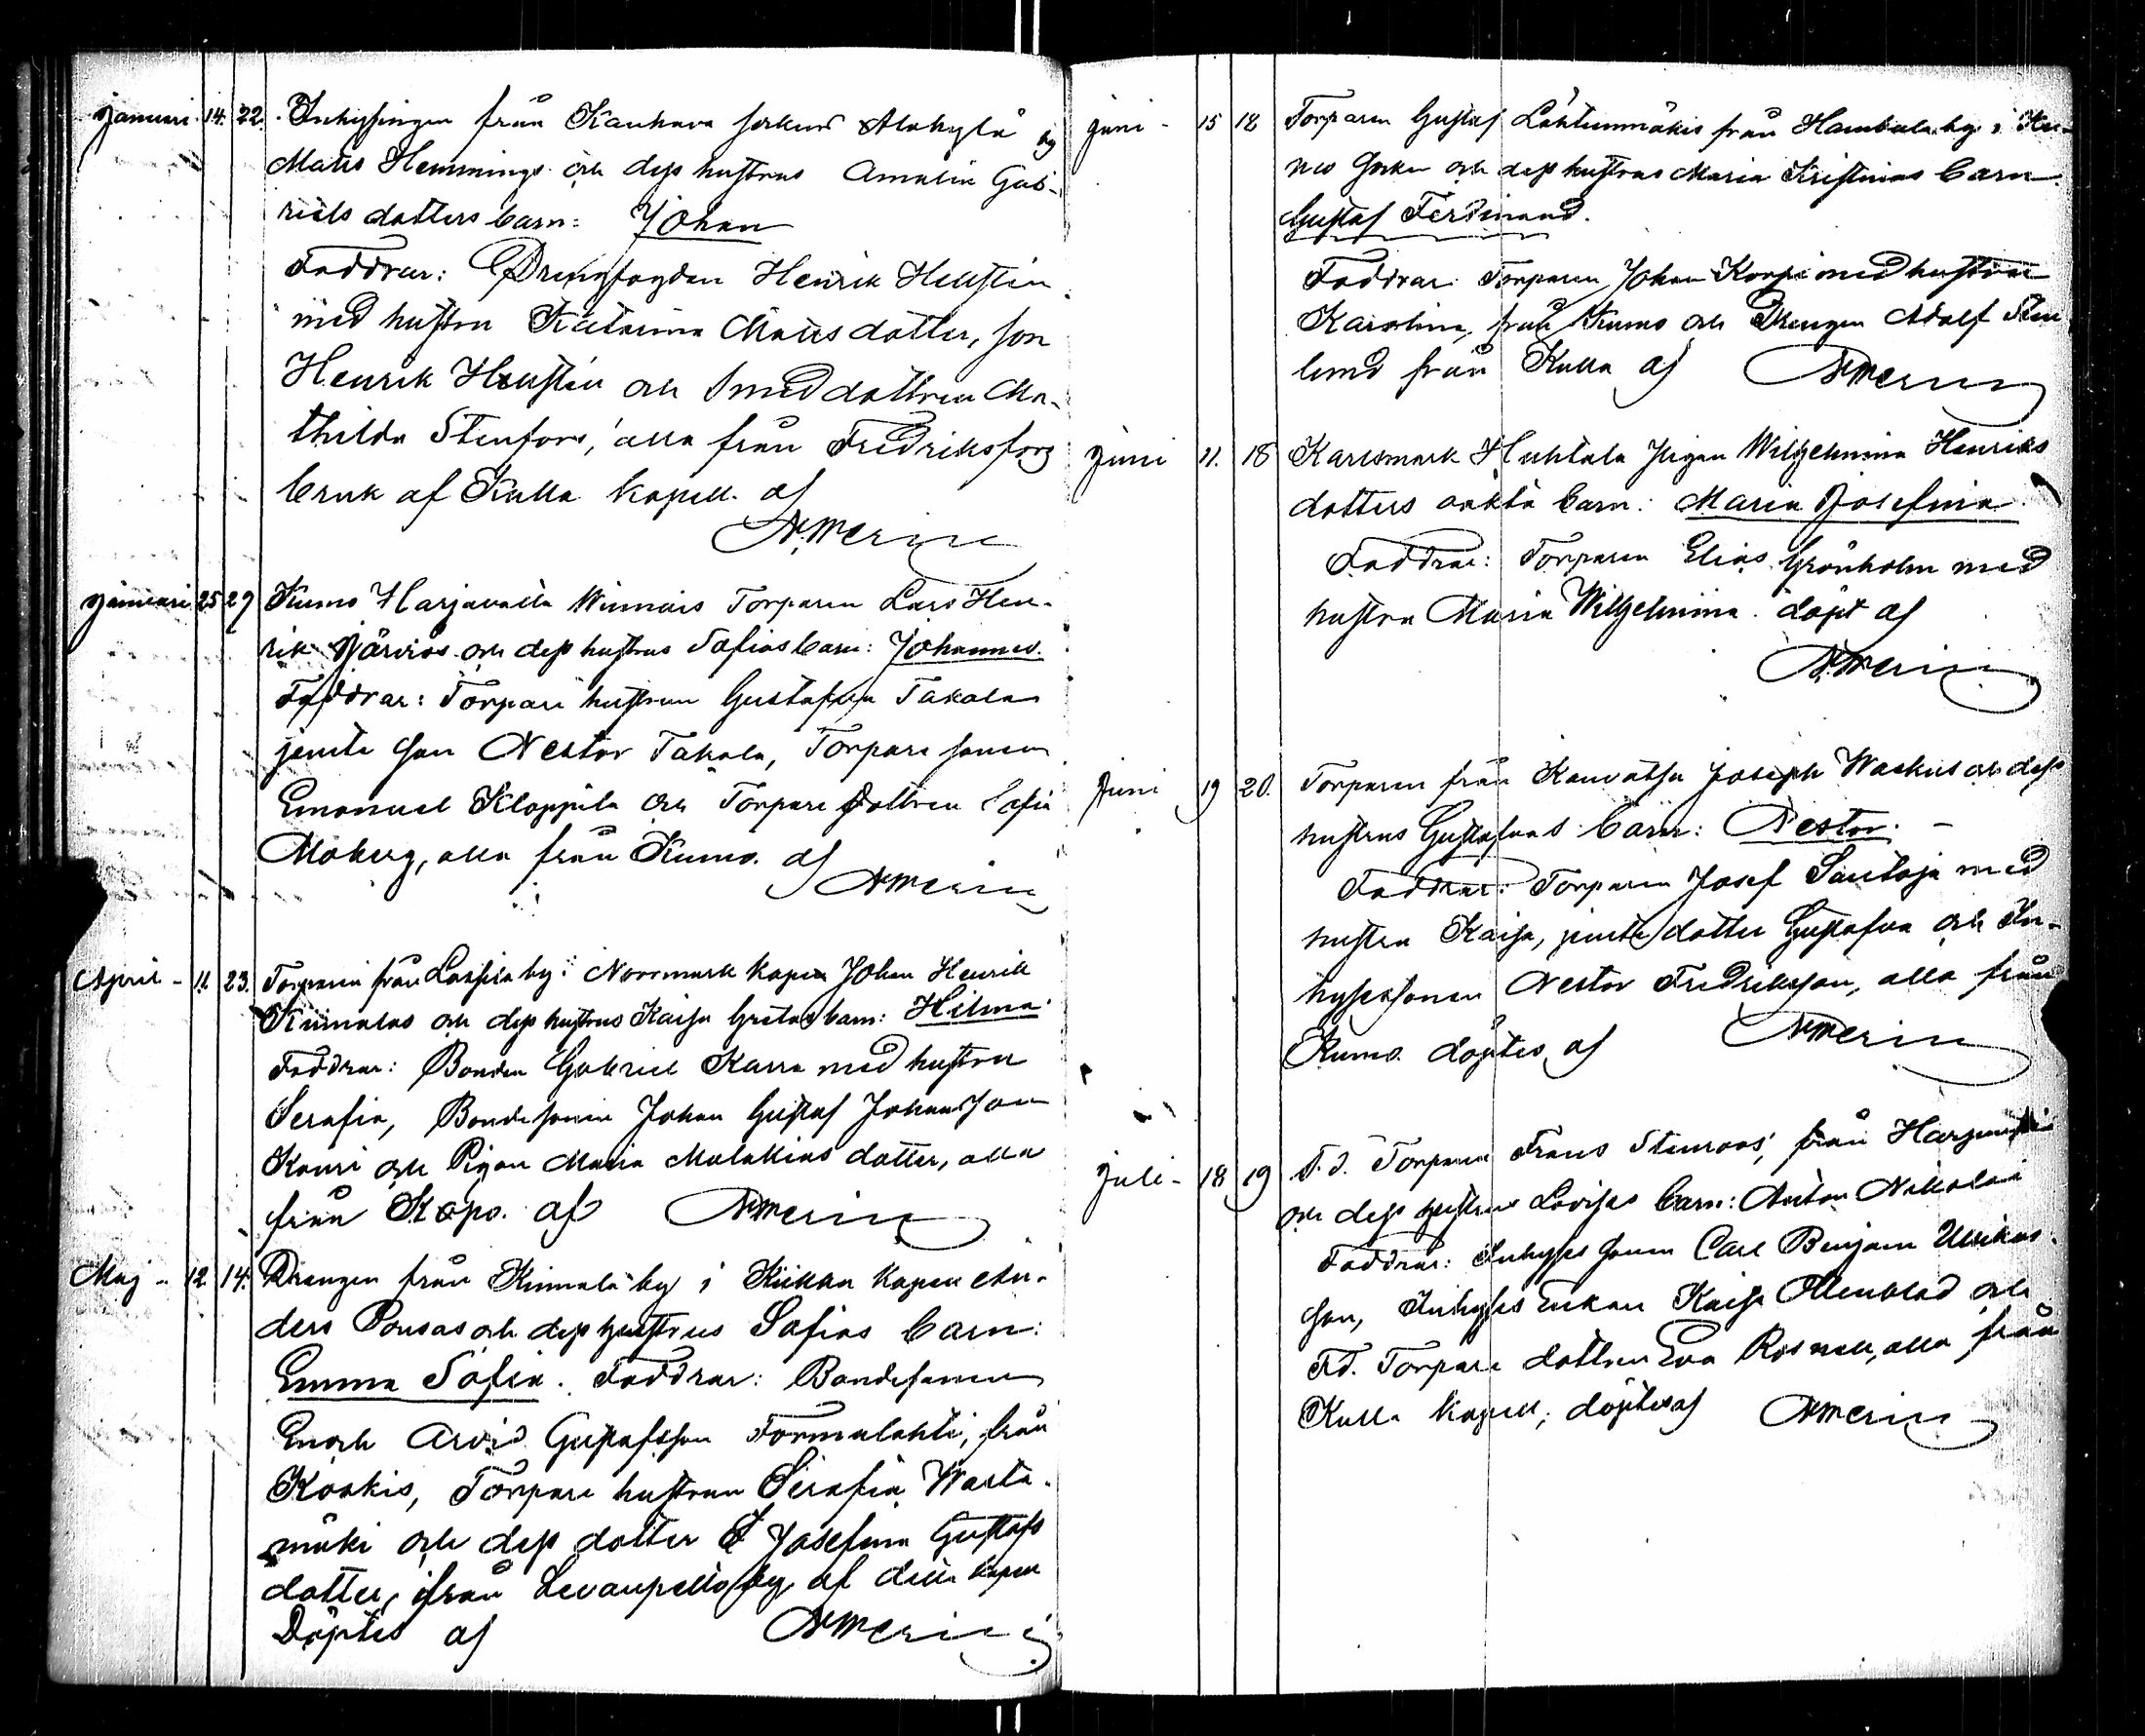 Januari 14. 22. Inhysingen från Kauhava socken Alakylä by
Matts Hemmings och dess hustrus Amalia Gab-
riels dotters barn: Johan
Faddrar: Drengfogden Henrik Hellstén
med hustru Katarina Mattsdotter, son
Henrik Hellstén och Smeddottren Ma-
thilda Stenfors, alla från Fredriksfors
bruk af Kulla kapell. af
N. Merin
Januari 25 29 Kumo Harjavalta Torparen Lars Hen-
rik Järviös och dess hustrus Sofias barn: Johannes.
Faddrar: Torpare hustrun Gustafva Takala
jemte son Nestor Takala, Torpare sonen
Emanuel Kloppila och Torpare dottren Sofia
Moberg, alla från Kumo. af
N Merin
April - 11. 23. Torparen från Lassila by i Norrmark kapell Johan Henrik
och dess hustrus Kaisa Gretas barn: Hilma
Faddrar: Bonden Gabriel Karra med hustru
Serafia, Bondesonen Johan Gustaf Johansson
och Pigan Maria Malakias dotter, alla
från af N Merin
Maj - 12. 14. Drengen från Kinnala by i Kiikka kapell An-
ders Ponsas och dess hustrus Sofias barn:
Emma Sofia. Faddrar: Bondesonen
Enoch Arvid Gustafsson Tormalahti, från
Koskis, Torpare hustrun Serafia Wasta-
mäki och dess dotter Josefina Gustafs
dotter, från by af kapell
Döptes af N Merin
Juni - 15 18 Torparen Gustaf Lähteenmäkis från by i Ku-
mo socken och dess hustrus Maria Kristinas barn
Gustaf Ferdinand.
Faddrar: Torparen Johan Korpi med hustru
Karolina, från Kumo och Drengen Adolf Sten
lund från Kulla af N Merin
Juni 11. 18 Karlsmark Huhtala Pigan Wilhelmina Henriks
dotters oäkta barn: Maria Josefina.
Faddrar: Torparen Elias Grönholm med
hustru Maria Wilhelmina. döpt af
N. Merin
Juni 19 20. Torparen från Kauvatsa Joseph Waskus och dess
hustrus Gustafvas barn: Nestor. -
Faddrar: Torparen Josef Santoja med
hustru Kaisa, jemte dotter Gustafva och In-
hysessonen Nestor Fredriksson, alla från
Kumo. döptes af N Merin
Juli - 18 19 F. d. Torparen Frans Stenroos, från
och dess hustrus Lovisas barn: Anton Nikolai
Faddrar: Inhyses sonen Carl Benjam Ulrikas-
son, Inhyses Enkan Kaisa och
F.d. Torpare dottren Eva Rosnell, alla från
Kulla kapell; döptes af N Merin